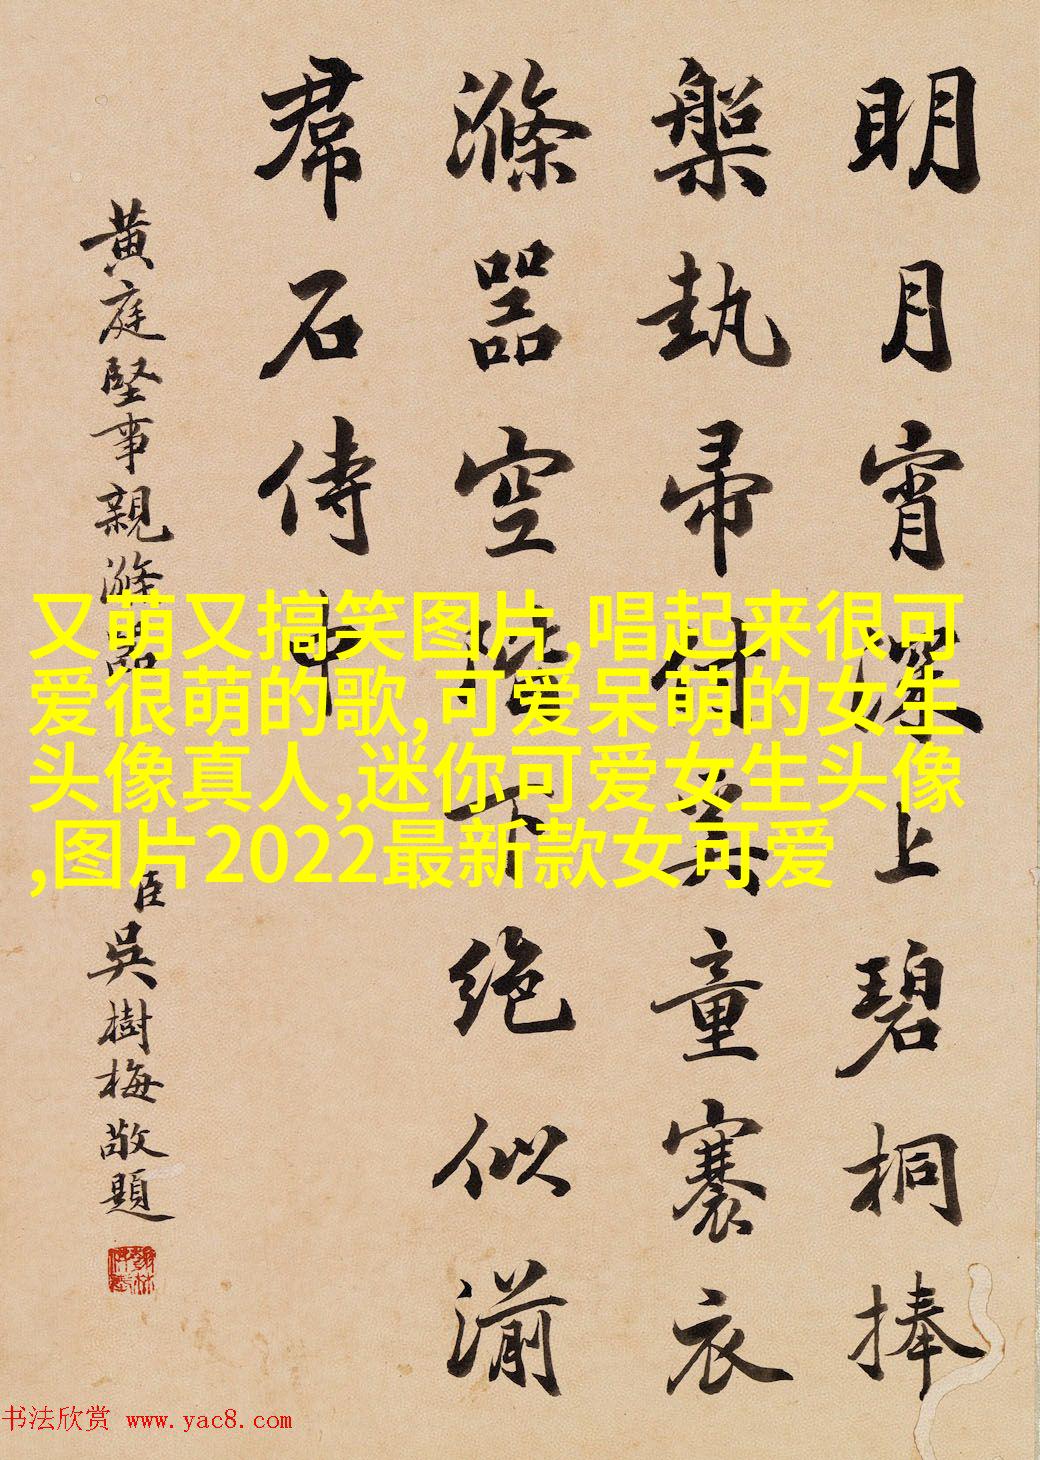 明月宵深上碧桐捧
槃執帚付奚童褰衣
滌噐空階下絶似湔
帬石侍中
黃庭堅事親滌噐
臣吳樹梅敬題
又萌又搞笑图片,唱起来很可
爱很萌的歌,可爱呆萌的女生
头像真人,迷你可爱女生头像
,图片2022最新款女可爱
书法欣赏 www.yac8.com